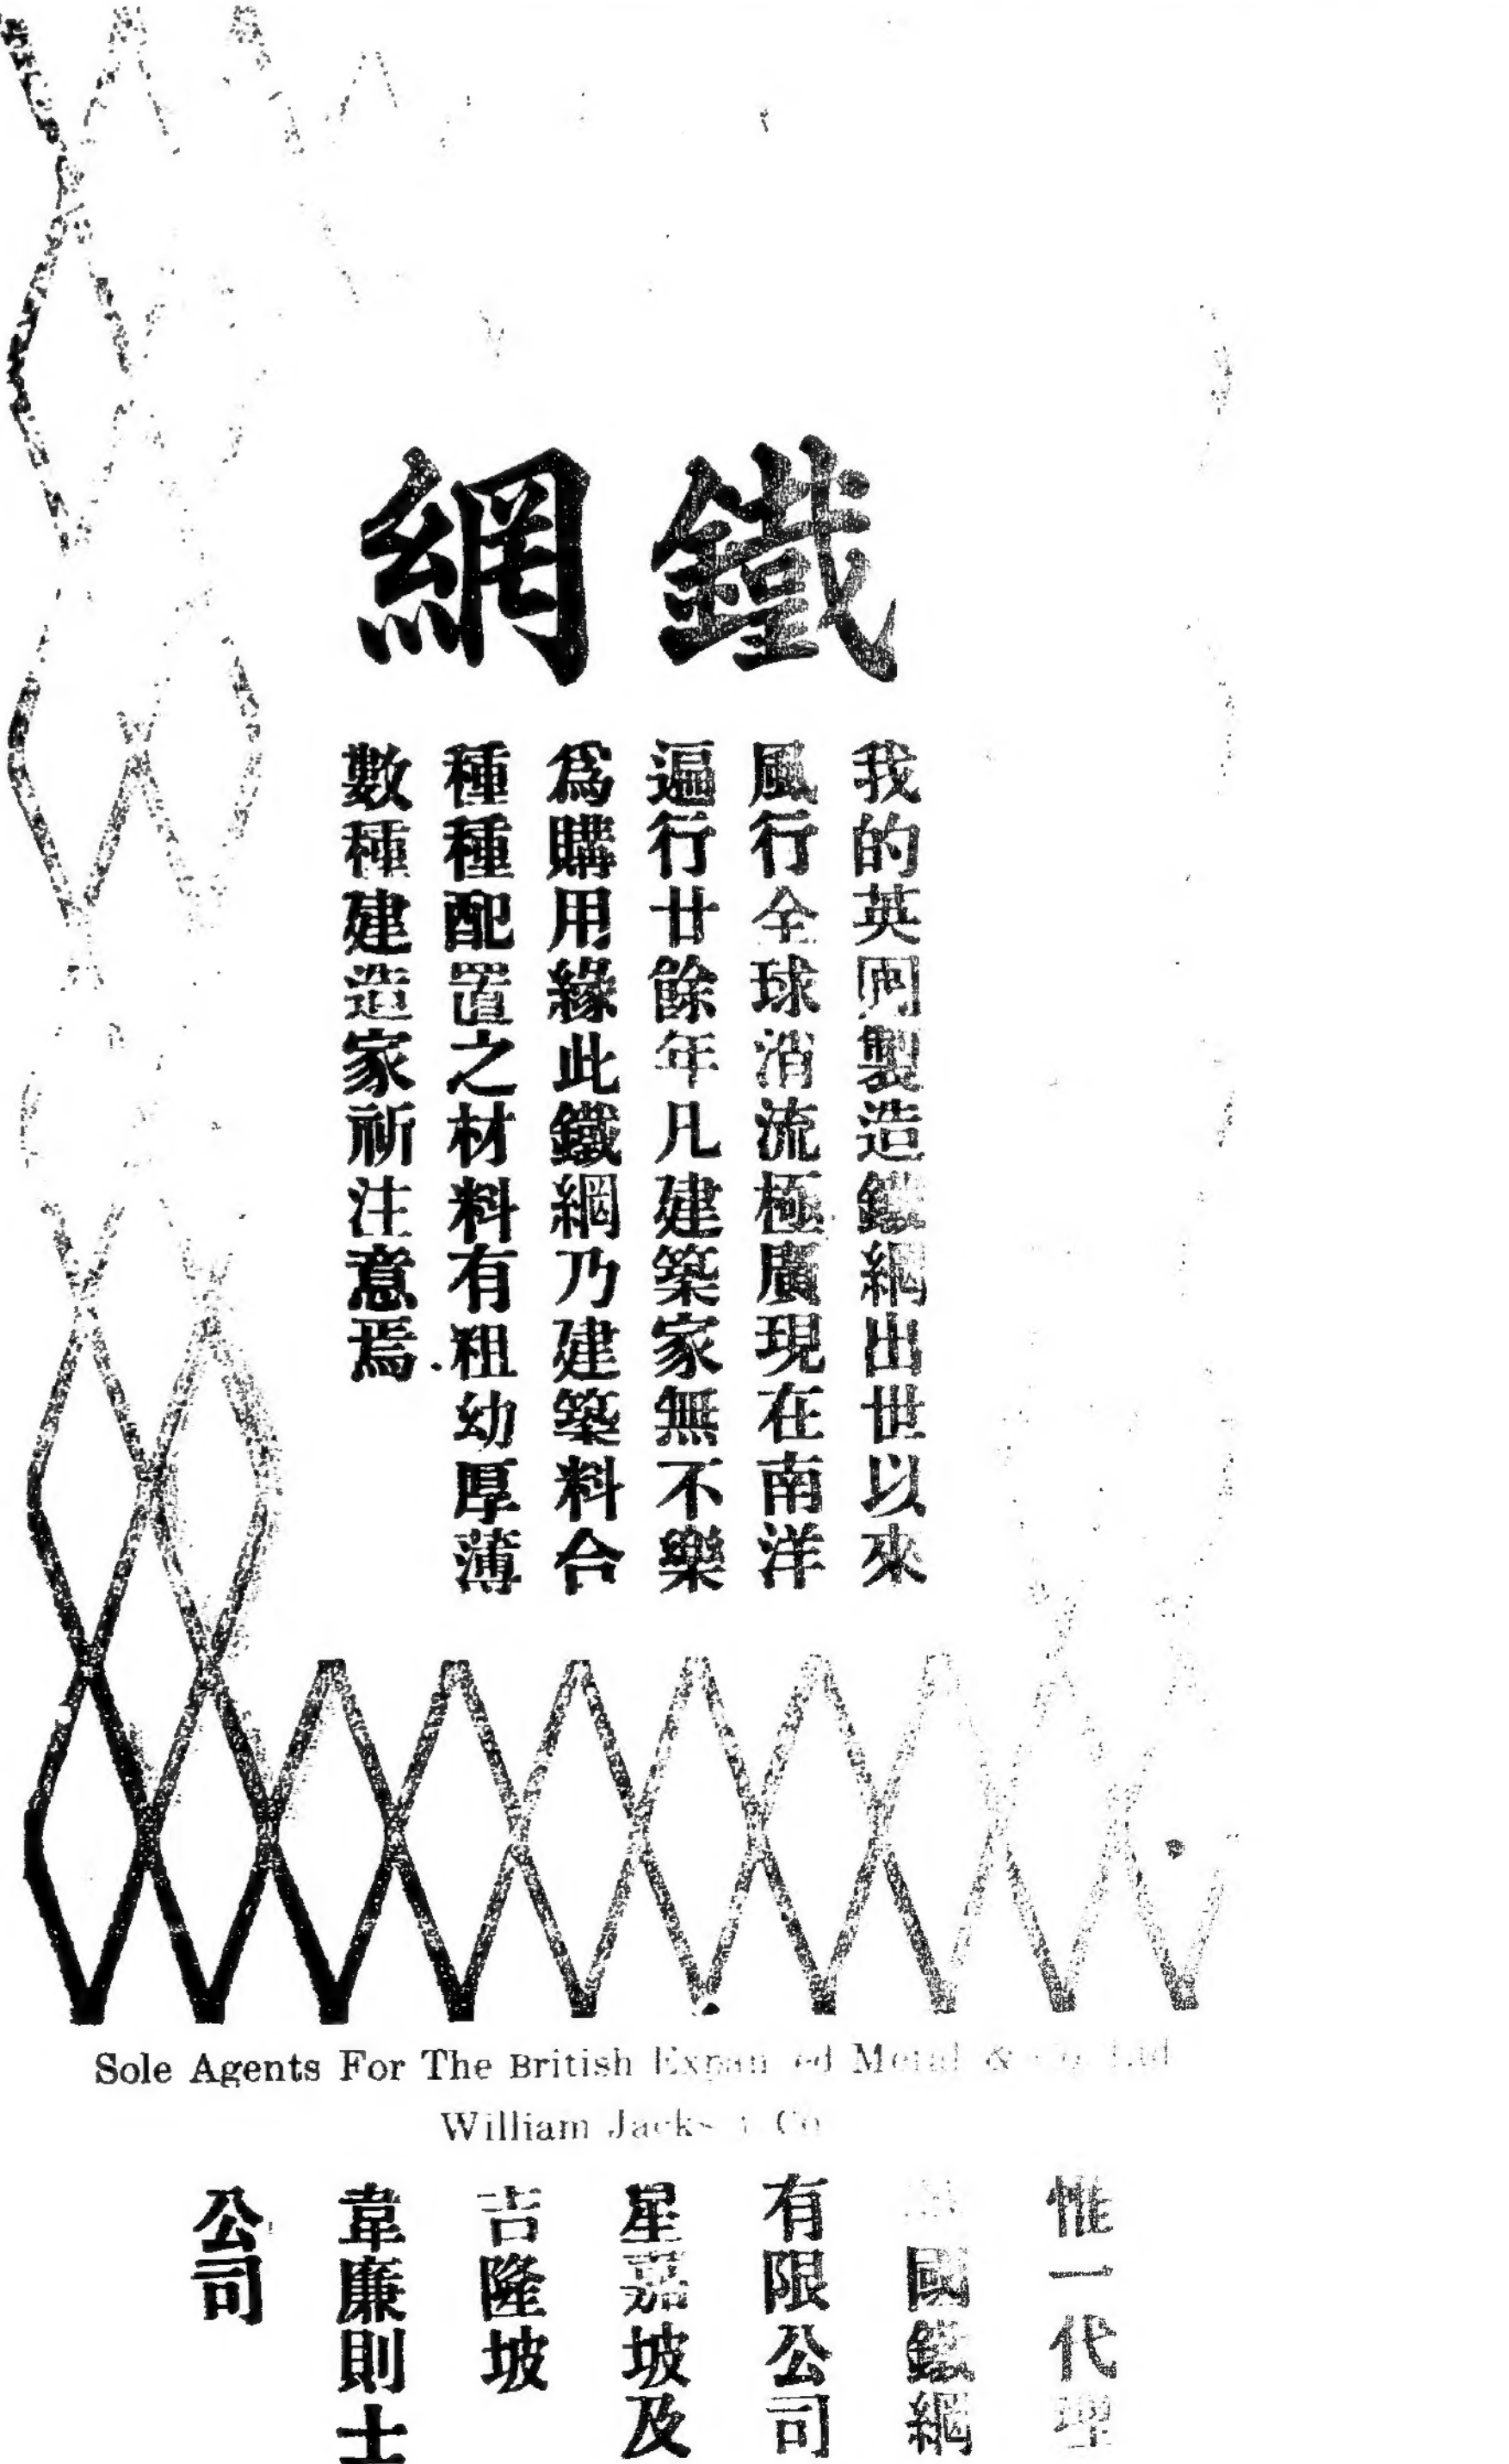 鐵網
我的英國製造鐵網出世以來
風行全球消流極廣現在南洋
遍行廿餘年凡建築家無不樂
爲購用緣此鐵網乃建築料合
種種配置之材料有粗幼厚薄
數種建造家祈注意焉
Sole Agents For The British Expanded Metal & Co. Ltd
William Jacks Co
惟一代理
國鐵網
有限公司
星嘉坡及
吉隆坡
韋廉則士
公司